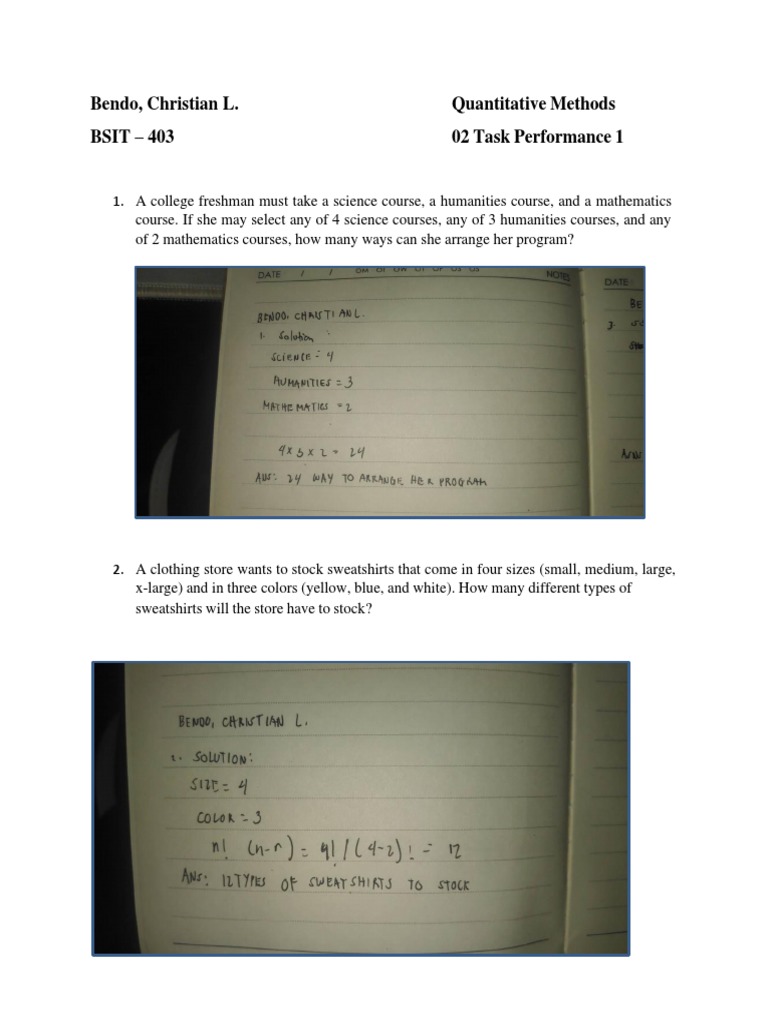 Bendo, Christian L.
Quantitative Methods
BSIT – 403
02 Task Performance 1
1. A college freshman must take a science course, a humanities course, and a mathematics
course. If she may select any of 4 science courses, any of 3 humanities courses, and any
of 2 mathematics courses, how many ways can she arrange her program?
DATE / /
NOTES
DATE :
BENDO, CHRISTIAN L.
BE
1. Solution :
3.
SCIENCE = 4
HUMANITIES = 3
MATHEMATICS = 2
4 x 3 x 2 = 24
ANS: 24 WAY TO ARRANGE HER PROGRAM
2. A clothing store wants to stock sweatshirts that come in four sizes (small, medium, large,
x-large) and in three colors (yellow, blue, and white). How many different types of
sweatshirts will the store have to stock?
BENDO, CHRISTIAN L.
2. SOLUTION:
SIZE = 4
COLOR = 3
n! (n-r) = 4! / (4-2)! = 12
ANS: 12 TYPES OF SWEATSHIRTS TO STOCK